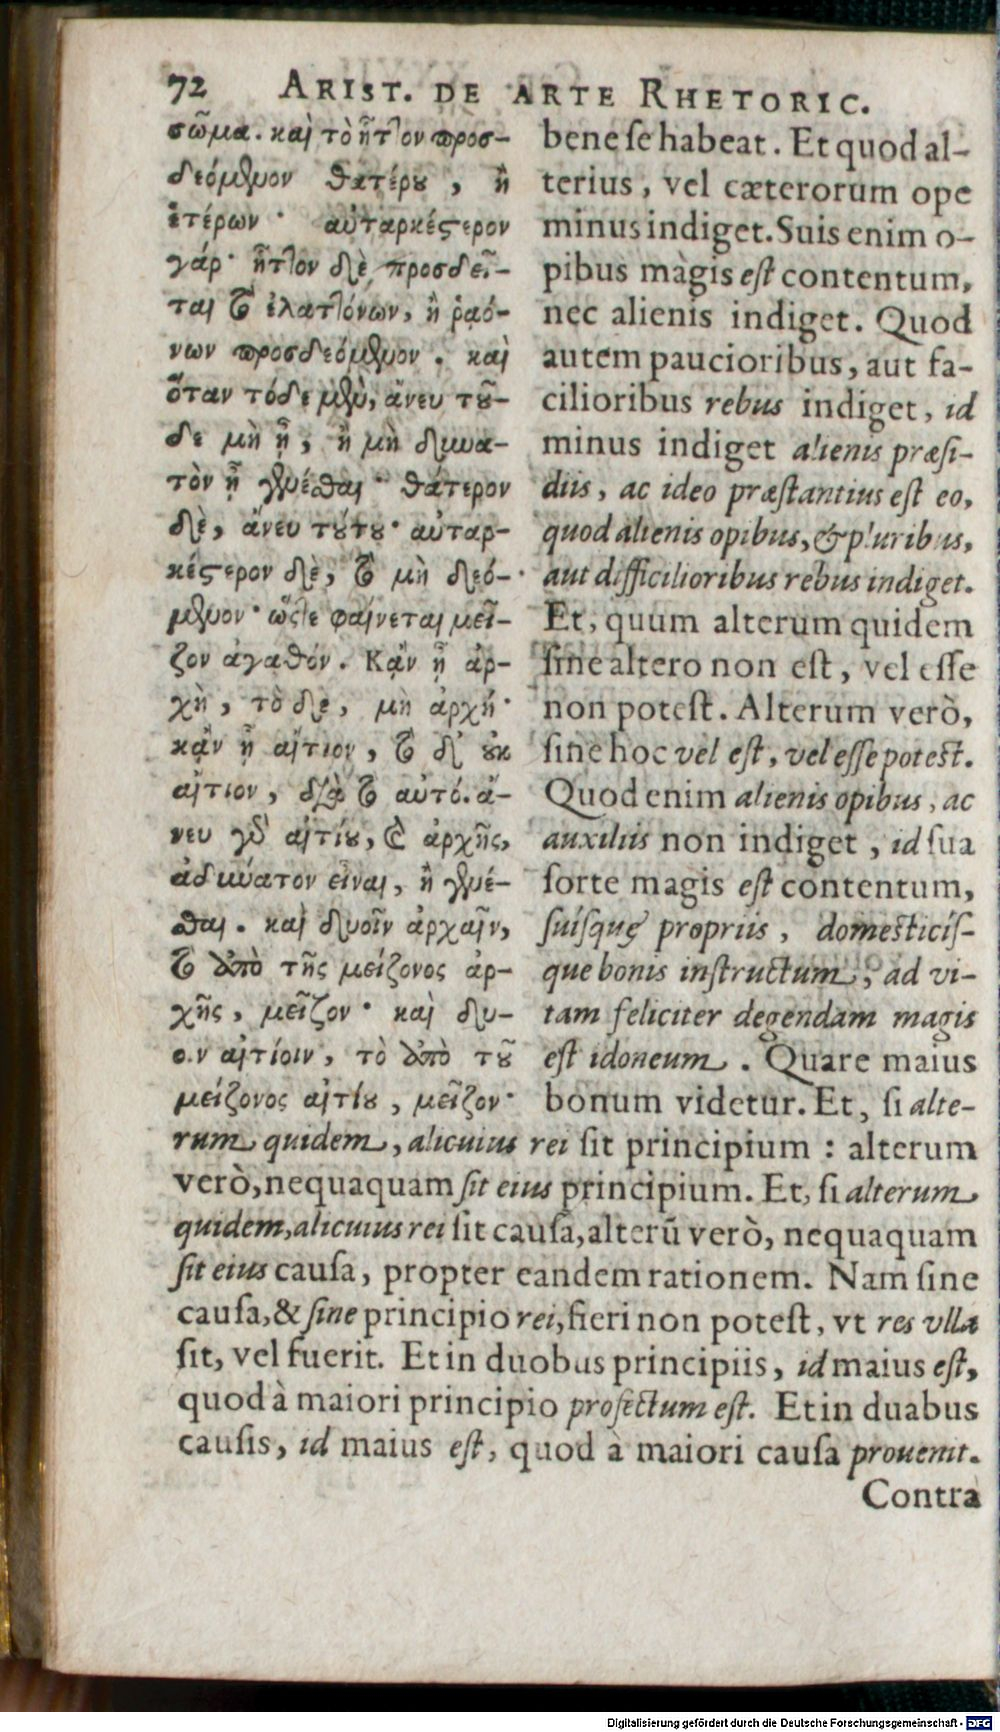 72 ARIST. DE ARTE RHETORIC.
σῶμα. καὶ τὸ ἧττον προσ-
δεόμενον θατέρου, ἢ
ἑτέρων· αὐταρκέστερον
γάρ· ἧττον δὲ προσδεῖ-
ται τὸ ἐλαττόνων, ἢ ῥαό-
νων προσδεόμενον. καὶ
ὅταν τόδε μὲν, ἄνευ τοῦ-
δε μὴ ᾖ, ἢ μὴ δυνα-
τὸν ᾖ γενέσθαι· θάτερον
δὲ, ἄνευ τούτου· αὐταρ-
κέστερον δὲ, τὸ μὴ δεό-
μενον· ὥστε φαίνεται μεῖ-
ζον ἀγαθόν. Κᾂν ᾖ ἀρ-
χὴ, τὸ δὲ, μὴ ἀρχή·
κᾂν ᾖ αἴτιον, τὸ δ' οὐκ
αἴτιον, διὰ τὸ αὐτό. ἄ-
νευ γὰρ αἰτίου, καὶ ἀρχῆς,
ἀδύνατον εἶναι, ἢ γενέ-
σθαι. καὶ δυοῖν ἀρχαῖν,
τὸ ἀπὸ τῆς μείζονος ἀρ-
χῆς, μεῖζον· καὶ δυ-
οιν αἰτίοιν, τὸ ἀπὸ τοῦ
μείζονος αἰτίου, μεῖζον·
bene se habeat. Et quod al-
terius, vel cæterorum ope
minus indiget. Suis enim o-
pibus màgis est contentum,
nec alienis indiget. Quod
autem paucioribus, aut fa-
cilioribus rebus indiget, id
minus indiget alienis præsi-
diis, ac ideo præstantius est eo,
quod alienis opibus, & pluribus,
aut difficilioribus rebus indiget.
Et, quum alterum quidem
sine altero non est, vel esse
non potest. Alterum verò,
sine hoc vel est, vel esse potest.
Quod enim alienis opibus, ac
auxiliis non indiget, id sua
sorte magis est contentum,
suísque propriis, domesticís-
que bonis instructum, ad vi-
tam feliciter degendam magis
est idoneum. Quare maius
bonum videtur. Et, si alte-
rum quidem, alicuius rei sit principium : alterum
verò, nequaquam sit eius principium. Et, si alterum
quidem, alicuius rei sit causa, alterū verò, nequaquam
sit eius causa, propter eandem rationem. Nam sine
causa, & sine principio rei, fieri non potest, vt res vlla
sit, vel fuerit. Et in duobus principiis, id maius est,
quod à maiori principio profectum est. Et in duabus
causis, id maius est, quod à maiori causa prouenit.
Contra
Digitalisierung gefördert durch die Deutsche Forschungsgemeinschaft - DFG